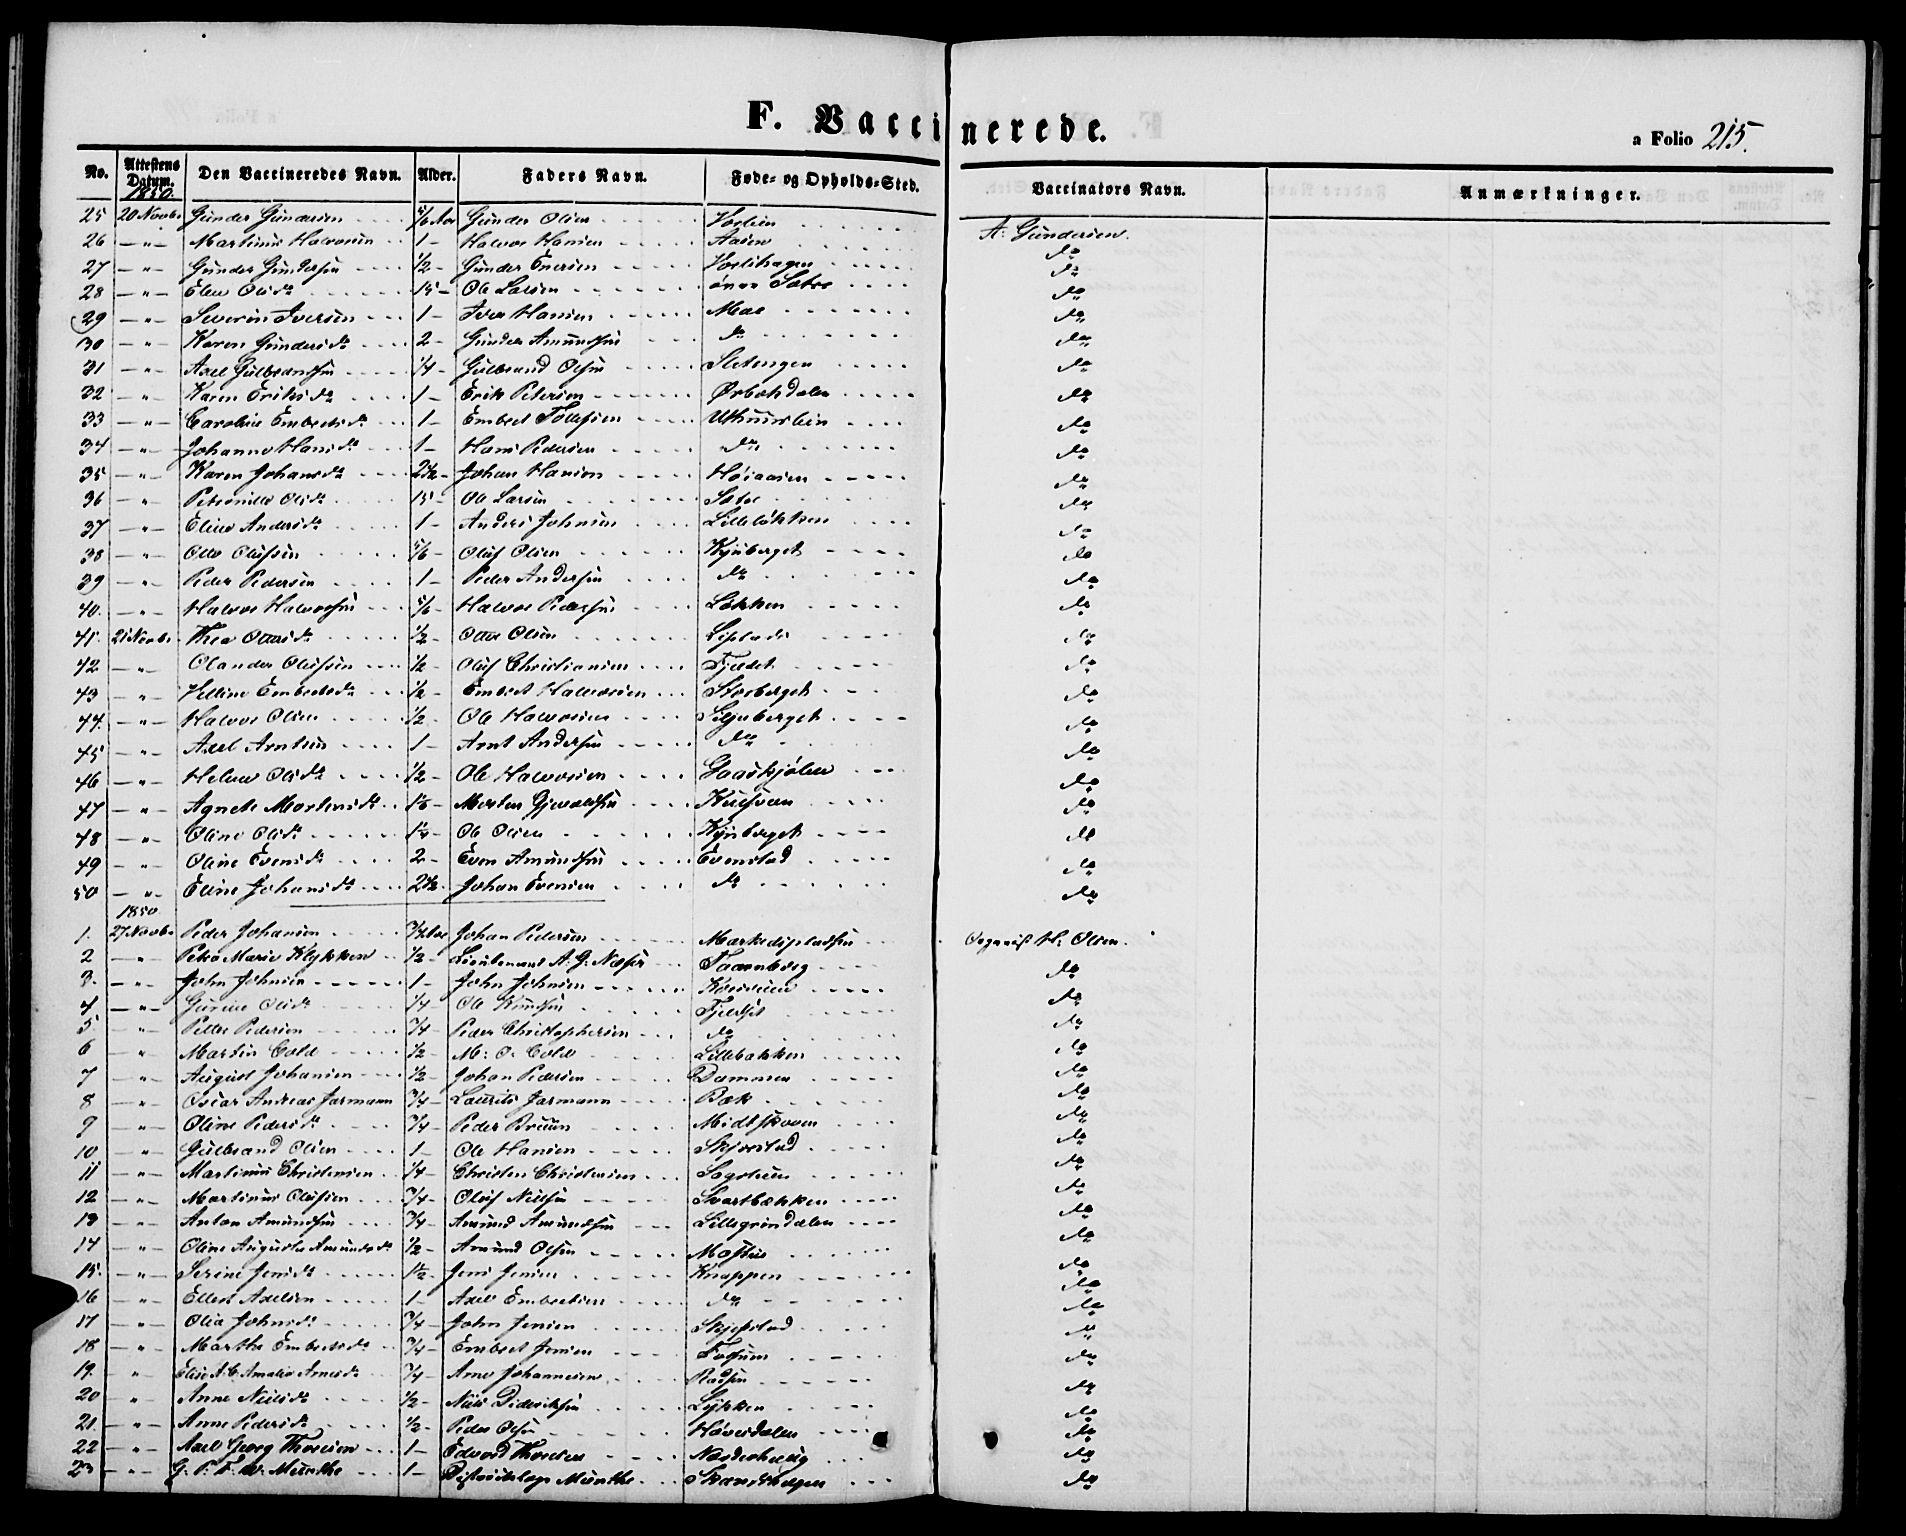 F. Vaccinerede.
a Folio 215.
No. Attestens Datum. Den Vaccineredes Navn. Alder. Faders Navn. Føde- og Opholds-Sted. Vaccinators Navn. Anmærkninger.
1850.
25 20 Novbr Gunder Gundersen 5/6 Aar Gunder Olsen A. Gundersen.
26 — " — Martinus Halvorsen 1 — Halvor Hansen Aasen do
27 — " — Gunder Gundersen 1/2 — Gunder Iversen do
28 — " — Elen Olsdr 15 — Ole Larsen Sætre do
29 — " — Severin Iversen 1 — Iver Hansen Moe do
30 — " — Karen Gundersdr 2 — Gunder Amundsen do do
31 — " — Axel Gulbrandsen 1/4 — Gulbrand Olsen Sletengen do
32 — " — Karen Eriksdr 1 — Erik Petersen Ørbekdalen do
33 — " — Caroline Embretsdr 1 — Embret Tollefsen do
34 — " — Johanne Hansdr 1 — Hans Pedersen do do
35 — " — Karen Johansdr 2 1/2 — Johan Hansen Høiaasen do
36 — " — Petronille Olsdr 15 — Ole Larsen Sætre do
37 — " — Eline Andersdr 1 — Anders Johnsen Lilleløkken do
38 — " — Otto Olufsen 5/6 — Oluf Olsen Kynberget do
39 — " — Peder Pedersen 1 — Peder Andersen do do
40. — " — Halvor Halvorsen 5/6 — Halvor Pedersen Løkken do
41. 21 Novbr. Thea Ottersdr 1/2 — Otter Olsen do
42 — " — Olander Olufsen 1/2 — Oluf Christiansen Fjeldet do
43 — " — Embretsdr 1/2 — Embret Halvorsen Storberget do
44. — " — Halvor Olsen 1/2 — Ole Halvorsen Siljuberget do
45 — " — Axel Arntsen 1 — Arnt Andersen do do
46 — " — Helene Olsdr 1/2 — Ole Halvorsen Gaaskjølen do
47 — " — Agnete Mortensdr Morten do
48 — " — Oline Olsdr Ole Olsen Kynberget do
49 — " — Oline Evensdr 2 — Even Amundsen Evenstad do
50 — " — Eline Johansdr 2 1/2 — Johan Evensen do do
1850
1. 27 Novbr Peder Johansen 3/4 Aar Johan Pedersen Markedspladsen H. Olsen.
2 — " — Petra Marie Klykken 1/2 — Lieutenant A. G. Næser Taarnberg do
3. — " — John Johnsen 1 — John Johnsen do
4 — " — Gurine Olsdr 1/4 — Ole Knudsen Fjeldset do
5 — " — Petter Pedersen 3/4 — Peder Christophersen do do
6 — " — Martin Cold 1/2 — M. O. Cold Lillebakken do
7 — " — August Johansen 1/2 — Johan Pedersen Dammen do
8 — " — Oscar Andreas Jarmann 3/4 — Laurits Jarmann Bæk do
9 — " — Oline Pedersdr 3/4 — Peder Bruun Midtskoven do
10 — " — Gulbrand Olsen 1 — Ole Hansen Skjerstad do
11 — " — Martinus Christensen 1/4 — Christen Christensen Sagstuen do
12 — " — Martinus Olufsen 3/4 — Oluf Nilsen Svartbækken do
13 — " — Anton Amundsen 3/4 — Amund Amundsen Lillegrindalen do
14 — " — Oline Augusta Amundsdr 1/2 — Amund Olsen do
15. — " — Serine Jensdr 1 1/2 — Jens Jensen Knappen do
16 — " — Ellert Axelsen 1 — Axel Embretsen do do
17 — " — Olea Johnsdr 3/4 — John Jensen Skjefstad do
18 — " — Marthe Embretsdr 3/4 — Embret Jensen Fossum do
19. — " — Elise A. C. Amalia Arnesdr 3/4 — Arne Johannesen do
20 — " — Anne Nilsdr 1/2 — Nils Dideriksen Løkken do
21. — " — Anne Pedersdr 1/2 — Peder Olsen Hovesdalen do
22 — " — Axel Georg Thoresen 1 — Edvard Thoresen do
23 — " — G. P. F. W. Munthe 1 — Districtslæge Munthe do